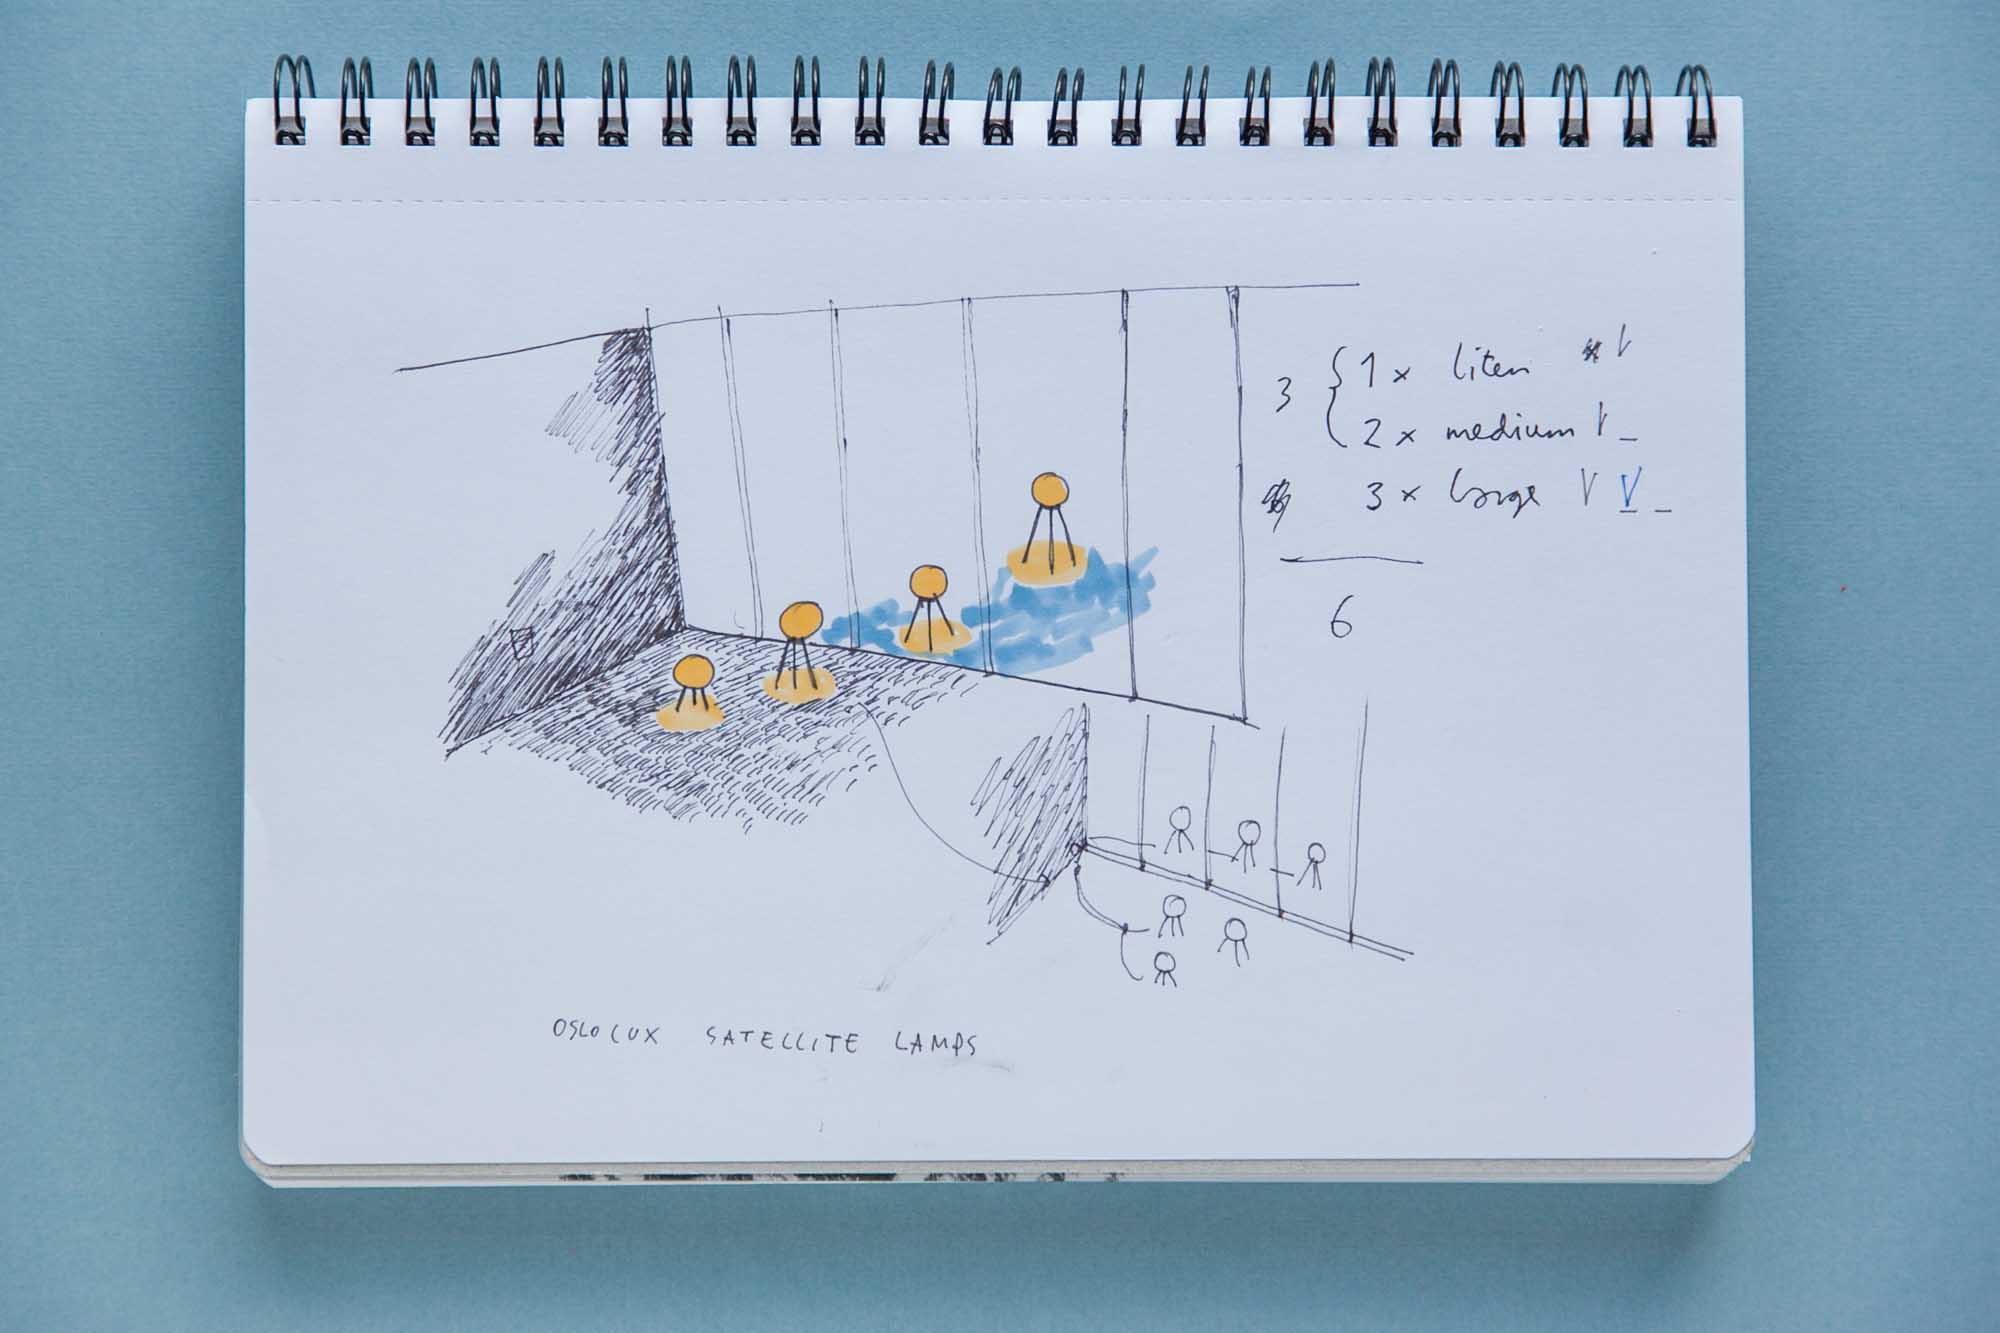 3 { 1 x liten
2 x medium
3 x large
6
OSLOLUX SATELLITE LAMPS